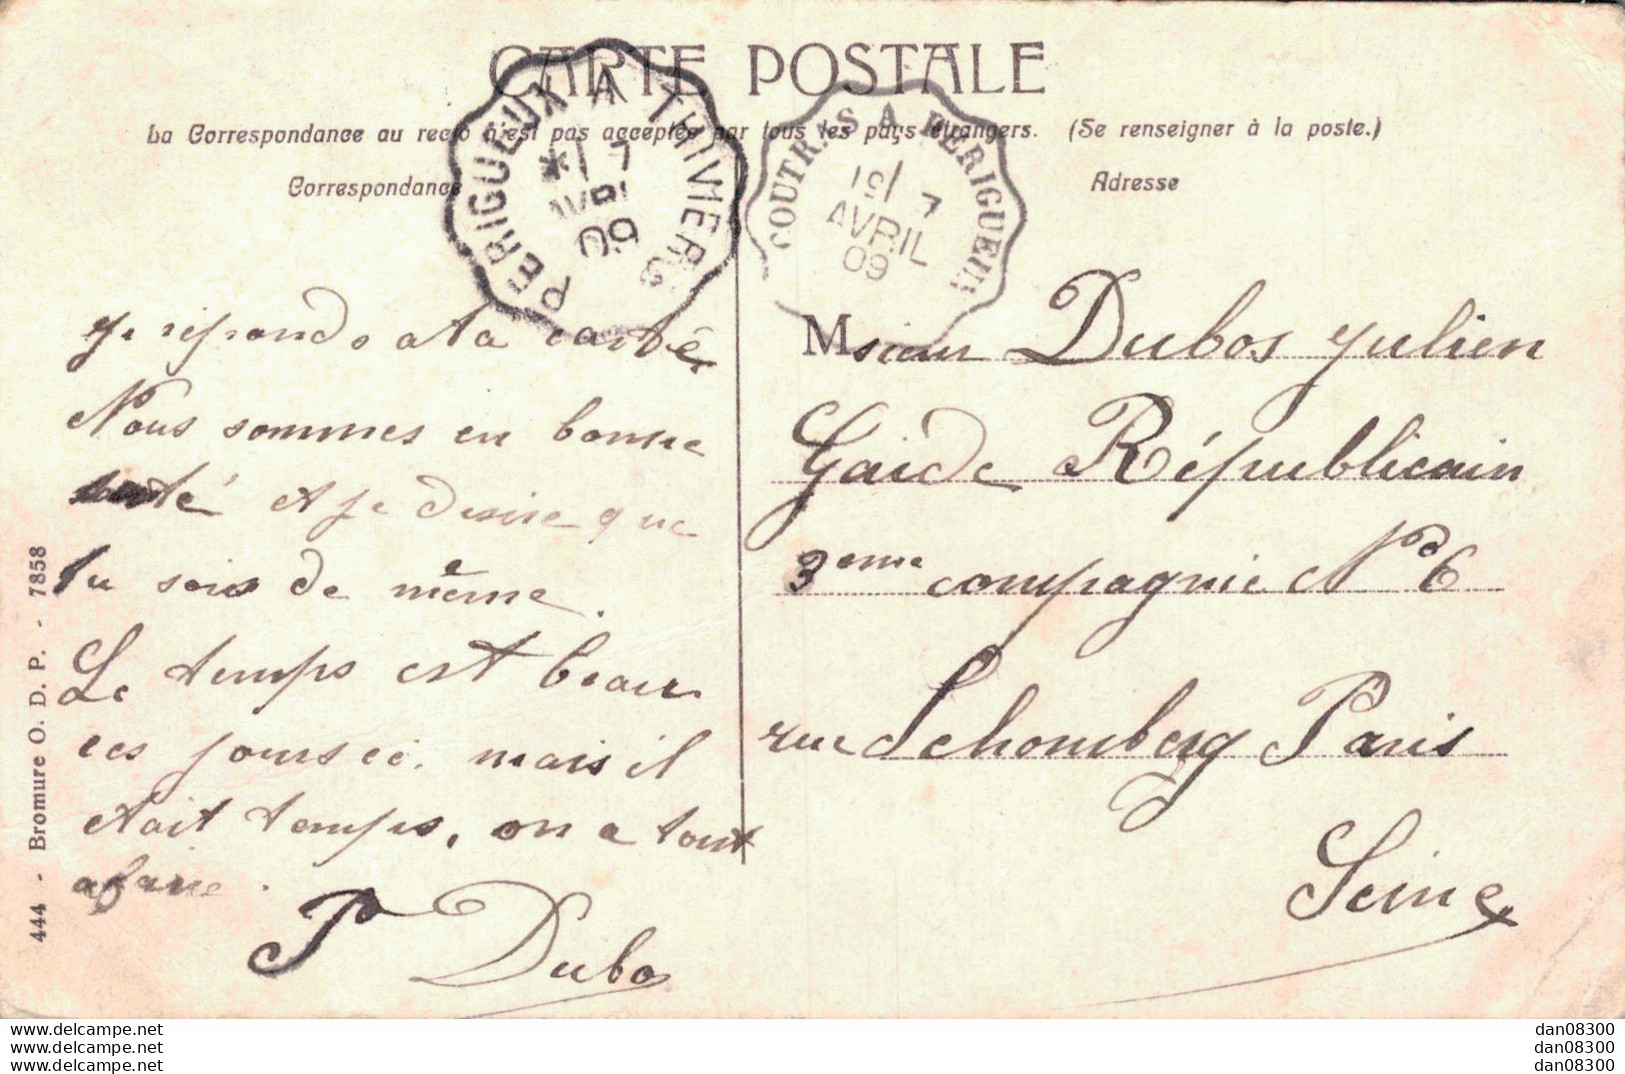 CARTE POSTALE
La Correspondance au recto n'est pas acceptée par tous les pays étrangers. (Se renseigner à la poste.)
Correspondance
Adresse
PERIGUEUX A THIVIERS
* 7
AVRIL
09
COUTRAS A PERIGUEUX
19 7
AVRIL
09
je réponds a ta carte
Nous sommes en bonne
santé et je desire que
tu sois de même.
Le temps est beau
ces jours ci. mais il
etait temps, on a tout
a faire.
P Dubos
Msieur Dubos Julien
Garde Républicain
3eme compagnie No 6
rue Schomberg Paris
Seine
444 - Bromure O. D. P. - 7858
www.delcampe.net
www.delcampe.net
www.delcampe.net
dan08300
dan08300
dan08300